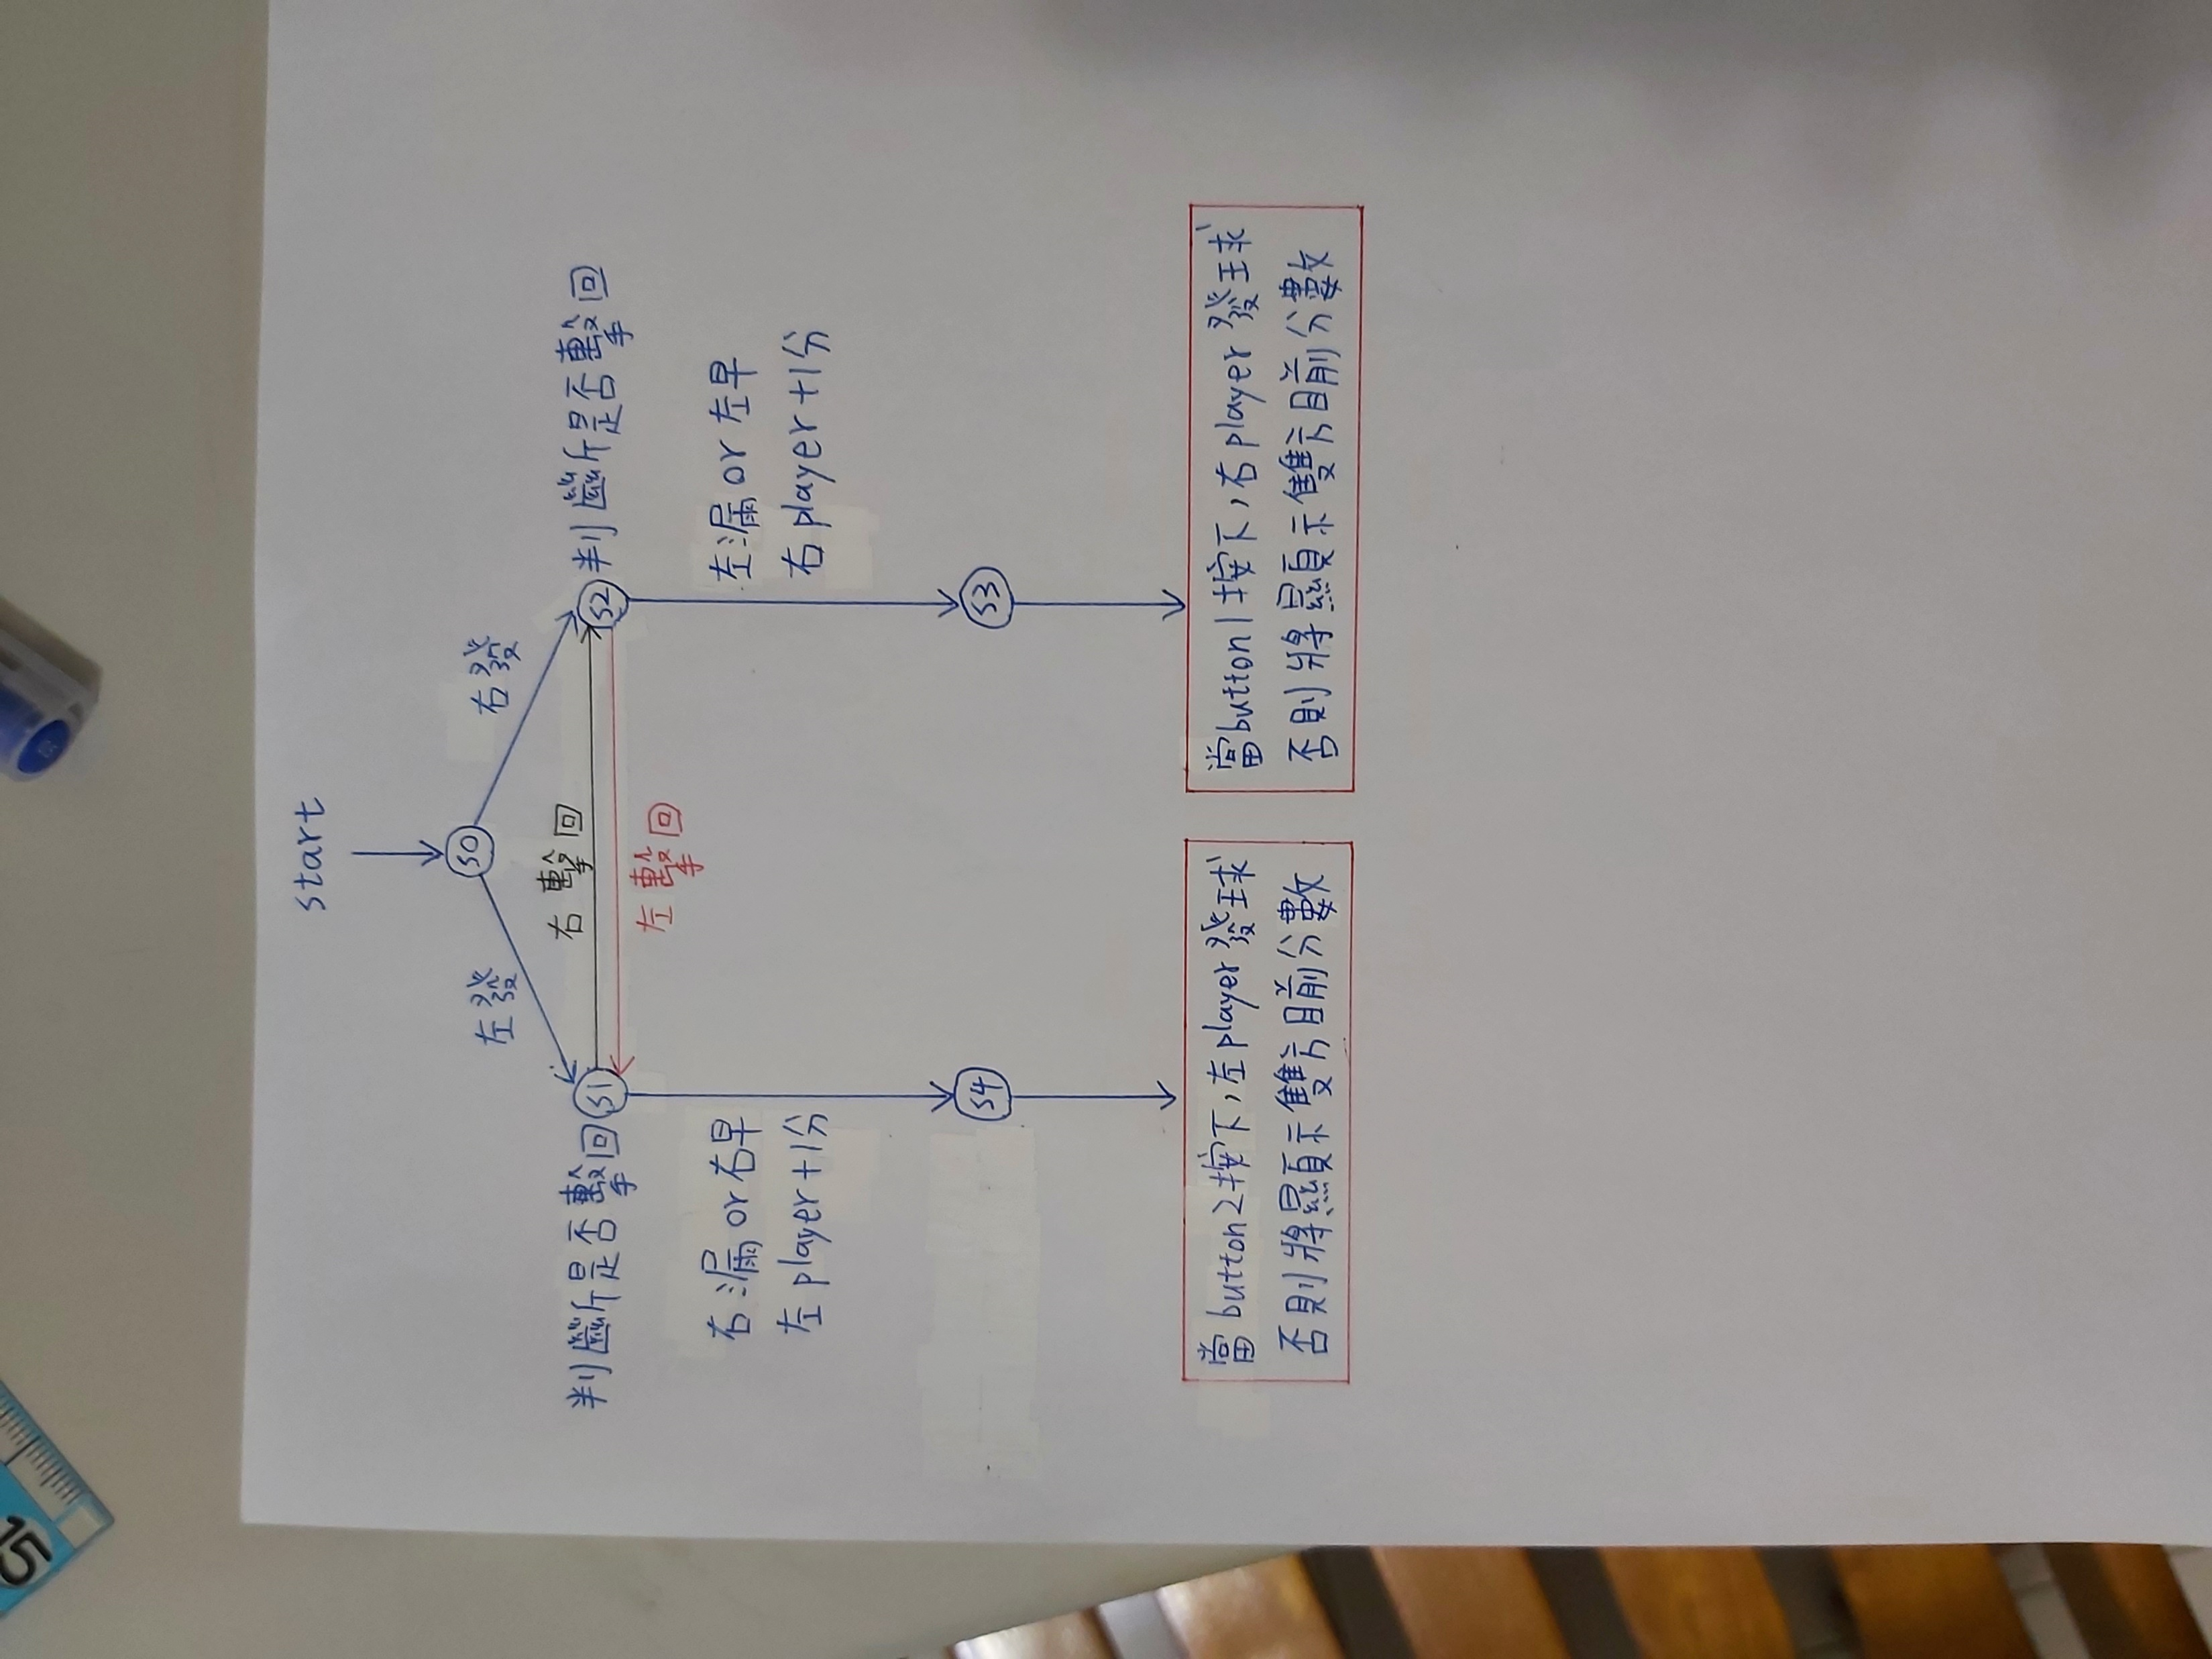 start
S0
左發
右發
右擊回
判斷是否擊回
S1
S2
判斷是否擊回
左擊回
右漏or右早
左player+1分
左漏or左早
右player+1分
S4
S3
當button2按下,左player發球
否則將顯示雙方目前分數
當button1按下,右player發球
否則將顯示雙方目前分數
15